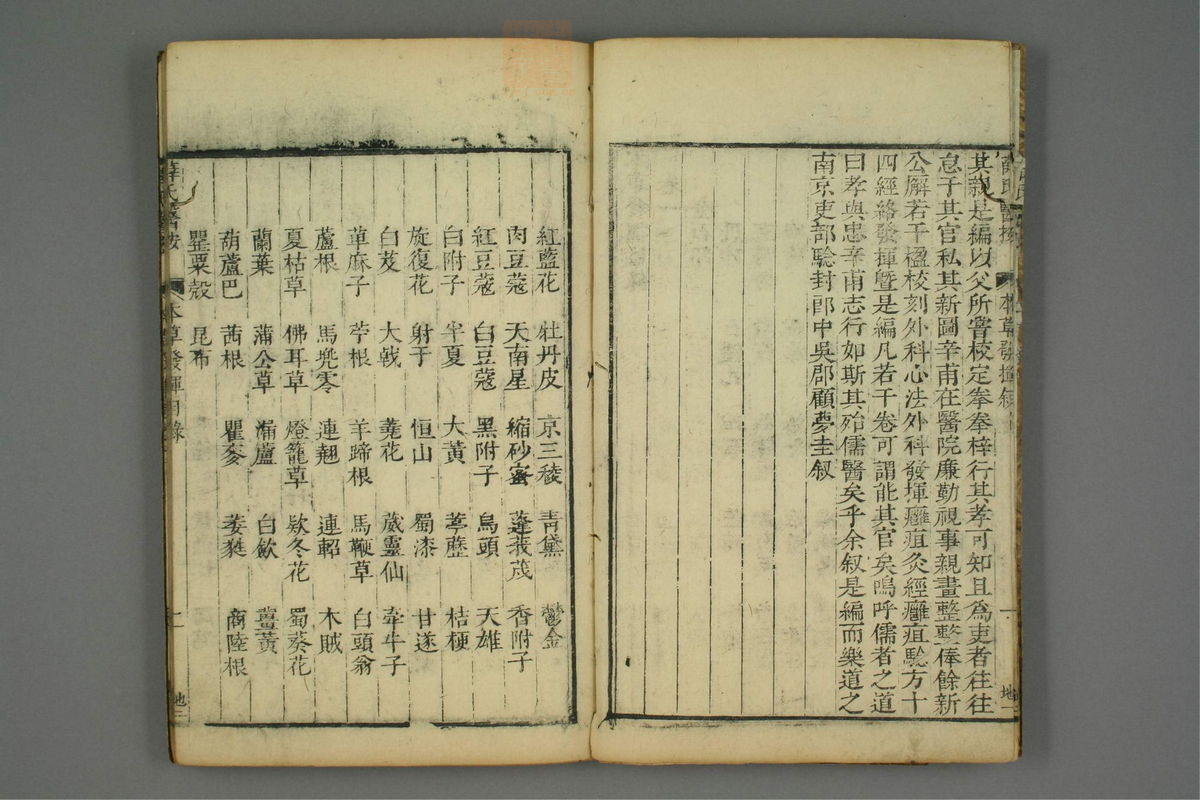 其親是編以父所嘗校定拳拳梓行其孝可知且為吏者往往
怠于其官私其新圖辛甫在醫院廉勤視事親畫整整俸餘新
公廨若干楹校刻外科心法外科發揮癰疽灸經癰疽驗方十
四經絡發揮暨是編凡若干卷可謂能其官矣嗚呼儒者之道
曰孝與忠辛甫志行如斯其殆儒醫矣乎余叙是編而樂道之
南京吏部驗封郎中吳郡顧夢圭叙
紅藍花 牡丹皮 京三稜 青黛 鬱金
肉豆蔻 天南星 縮砂蜜 蓬莪茂 香附子
紅豆蔻 白豆蔻 黑附子 烏頭 天雄
白附子 半夏 大黃 葶藶 桔梗
旋復花 射干 恒山 蜀漆 甘遂
白芨 大戟 蕘花 葳靈仙 牽牛子
萆麻子 苧根 羊蹄根 馬鞭草 白頭翁
蘆根 馬兜零 連翹 連軺 木賊
夏枯草 佛耳草 燈籠草 欵冬花 蜀葵花
蘭葉 蒲公草 漏蘆 白歛 薑黃
葫蘆巴 茜根 瞿麥 萎蕤 商陸根
罌粟殼 昆布
薛氏醫按 本草發揮目錄 地二